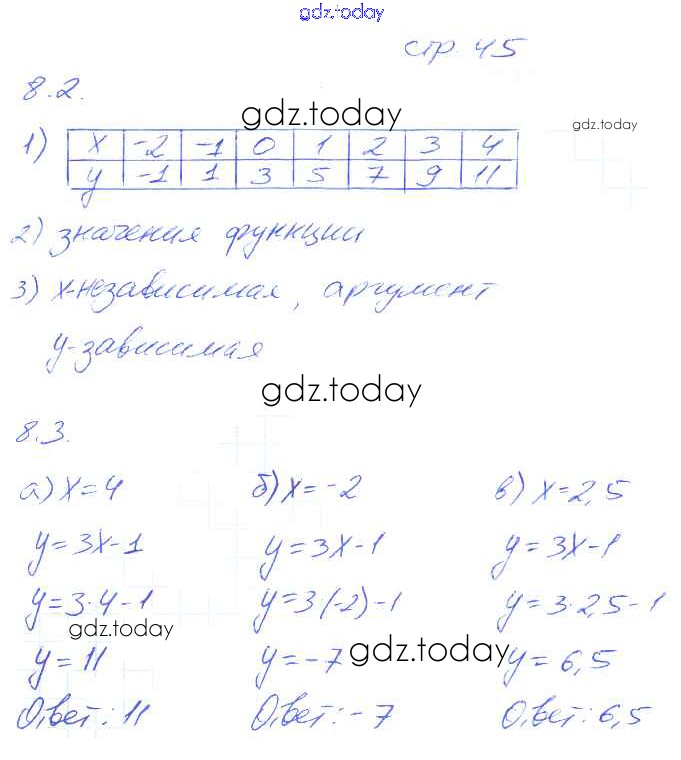 gdz.today
стр. 45
8.2.
gdz.today
gdz.today
1) x -2 -1 0 1 2 3 4
y -1 1 3 5 7 9 11
2) значения функции
3) x-независимая, аргумент
y-зависимая
gdz.today
8.3.
а) x=4 б) x=-2 в) x=2,5
y=3x-1 y=3x-1 y=3x-1
y=3·4-1 y=3(-2)-1 y=3·2,5-1
gdz.today
gdz.today
y=11 y=-7 y=6,5
Ответ: 11 Ответ: -7 Ответ: 6,5